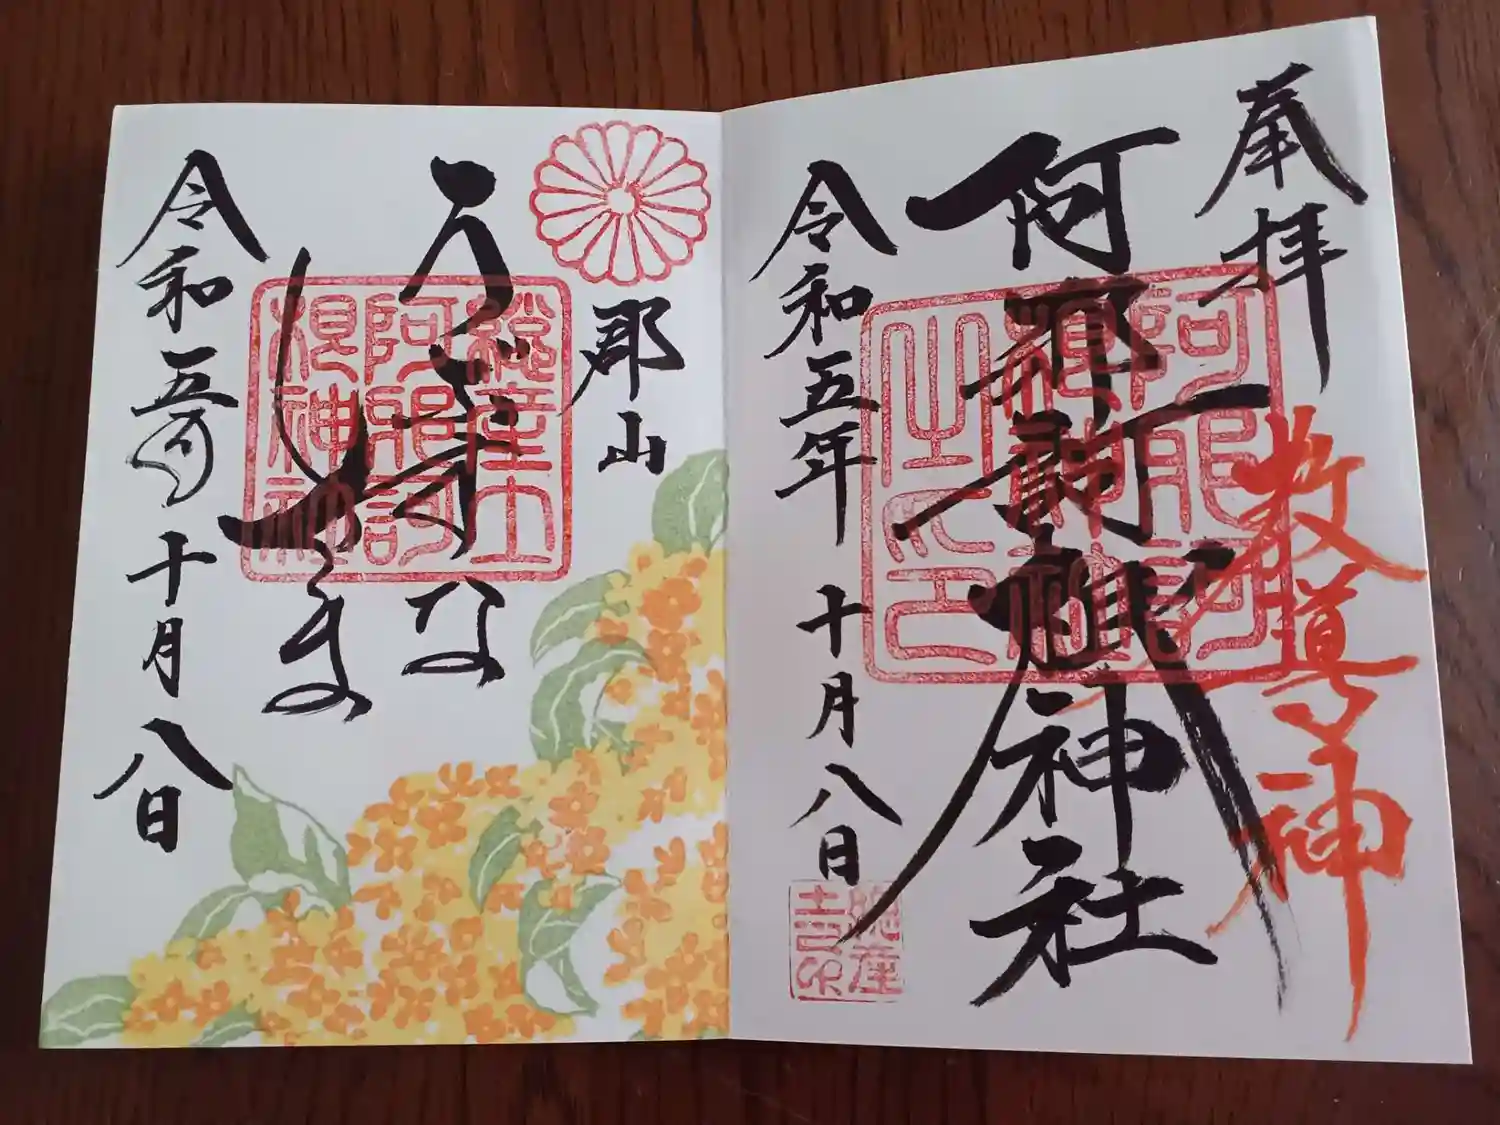 奉拝
教導之神
阿邪訶根神社
阿邪訶
根神社
之印
令和五年 十月八日
総産
土印
郡山
うぶすな
総産土
阿邪訶
根神社
令和五年十月八日